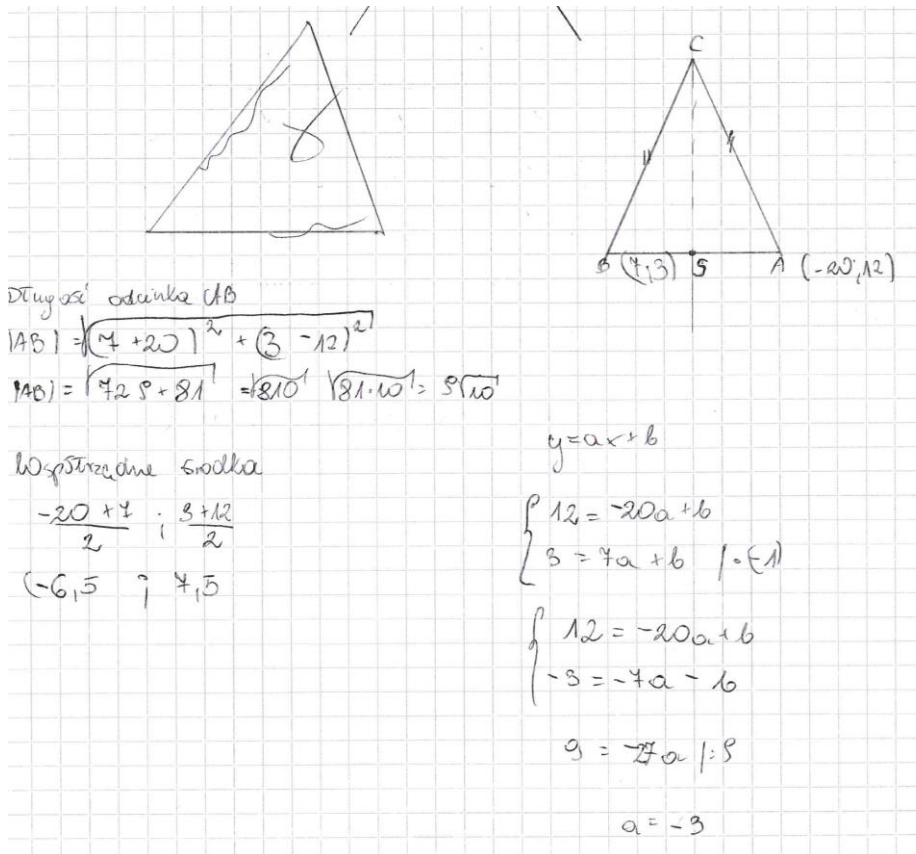 C
B (7,3) S A (-20,12)
Długość odcinka AB
|AB| = √(7+20)² + (3-12)²
|AB| = √729+81 = √810 √81·10 = 9√10
Współrzędne środka
-20+7/2 ; 3+12/2
(-6,5 ; 7,5
y=ax+b
{ 12 = -20a+b
3 = 7a+b /·(-1)
{ 12 = -20a+b
-3 = -7a-b
9 = -27a /:9
a = -3